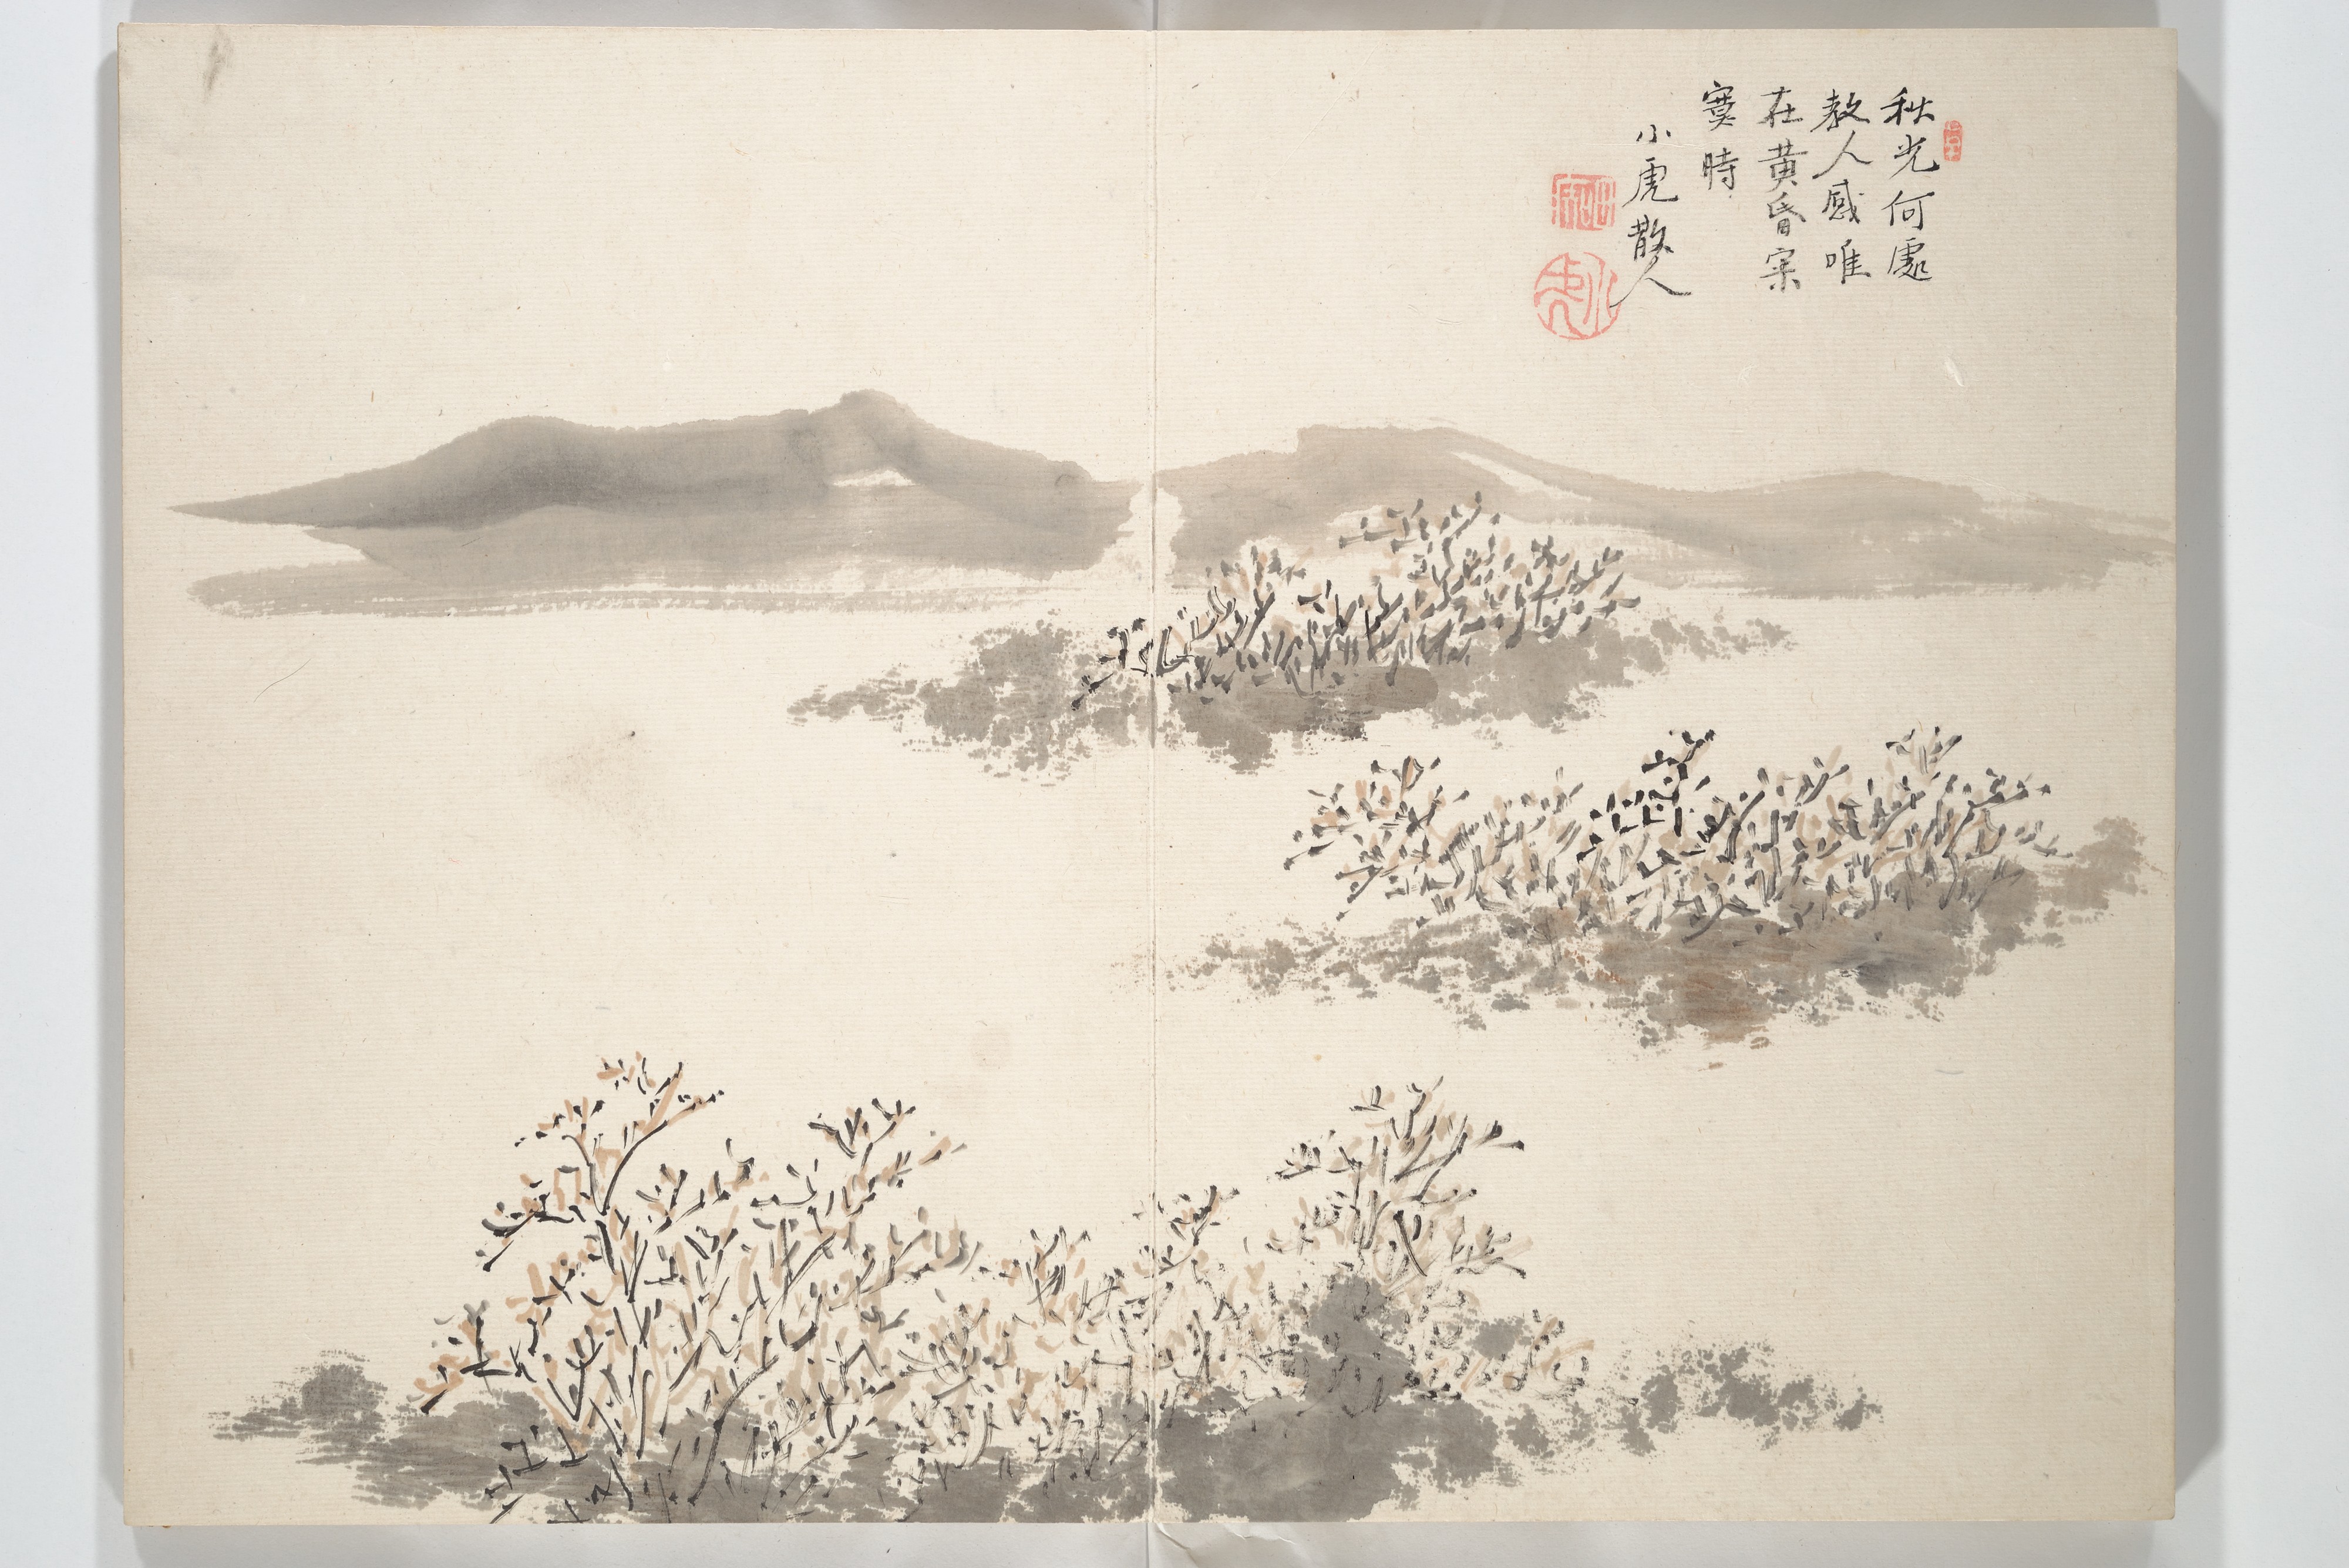 秋光何處
教人感唯
在黄昏寂
寞時
小虎散人